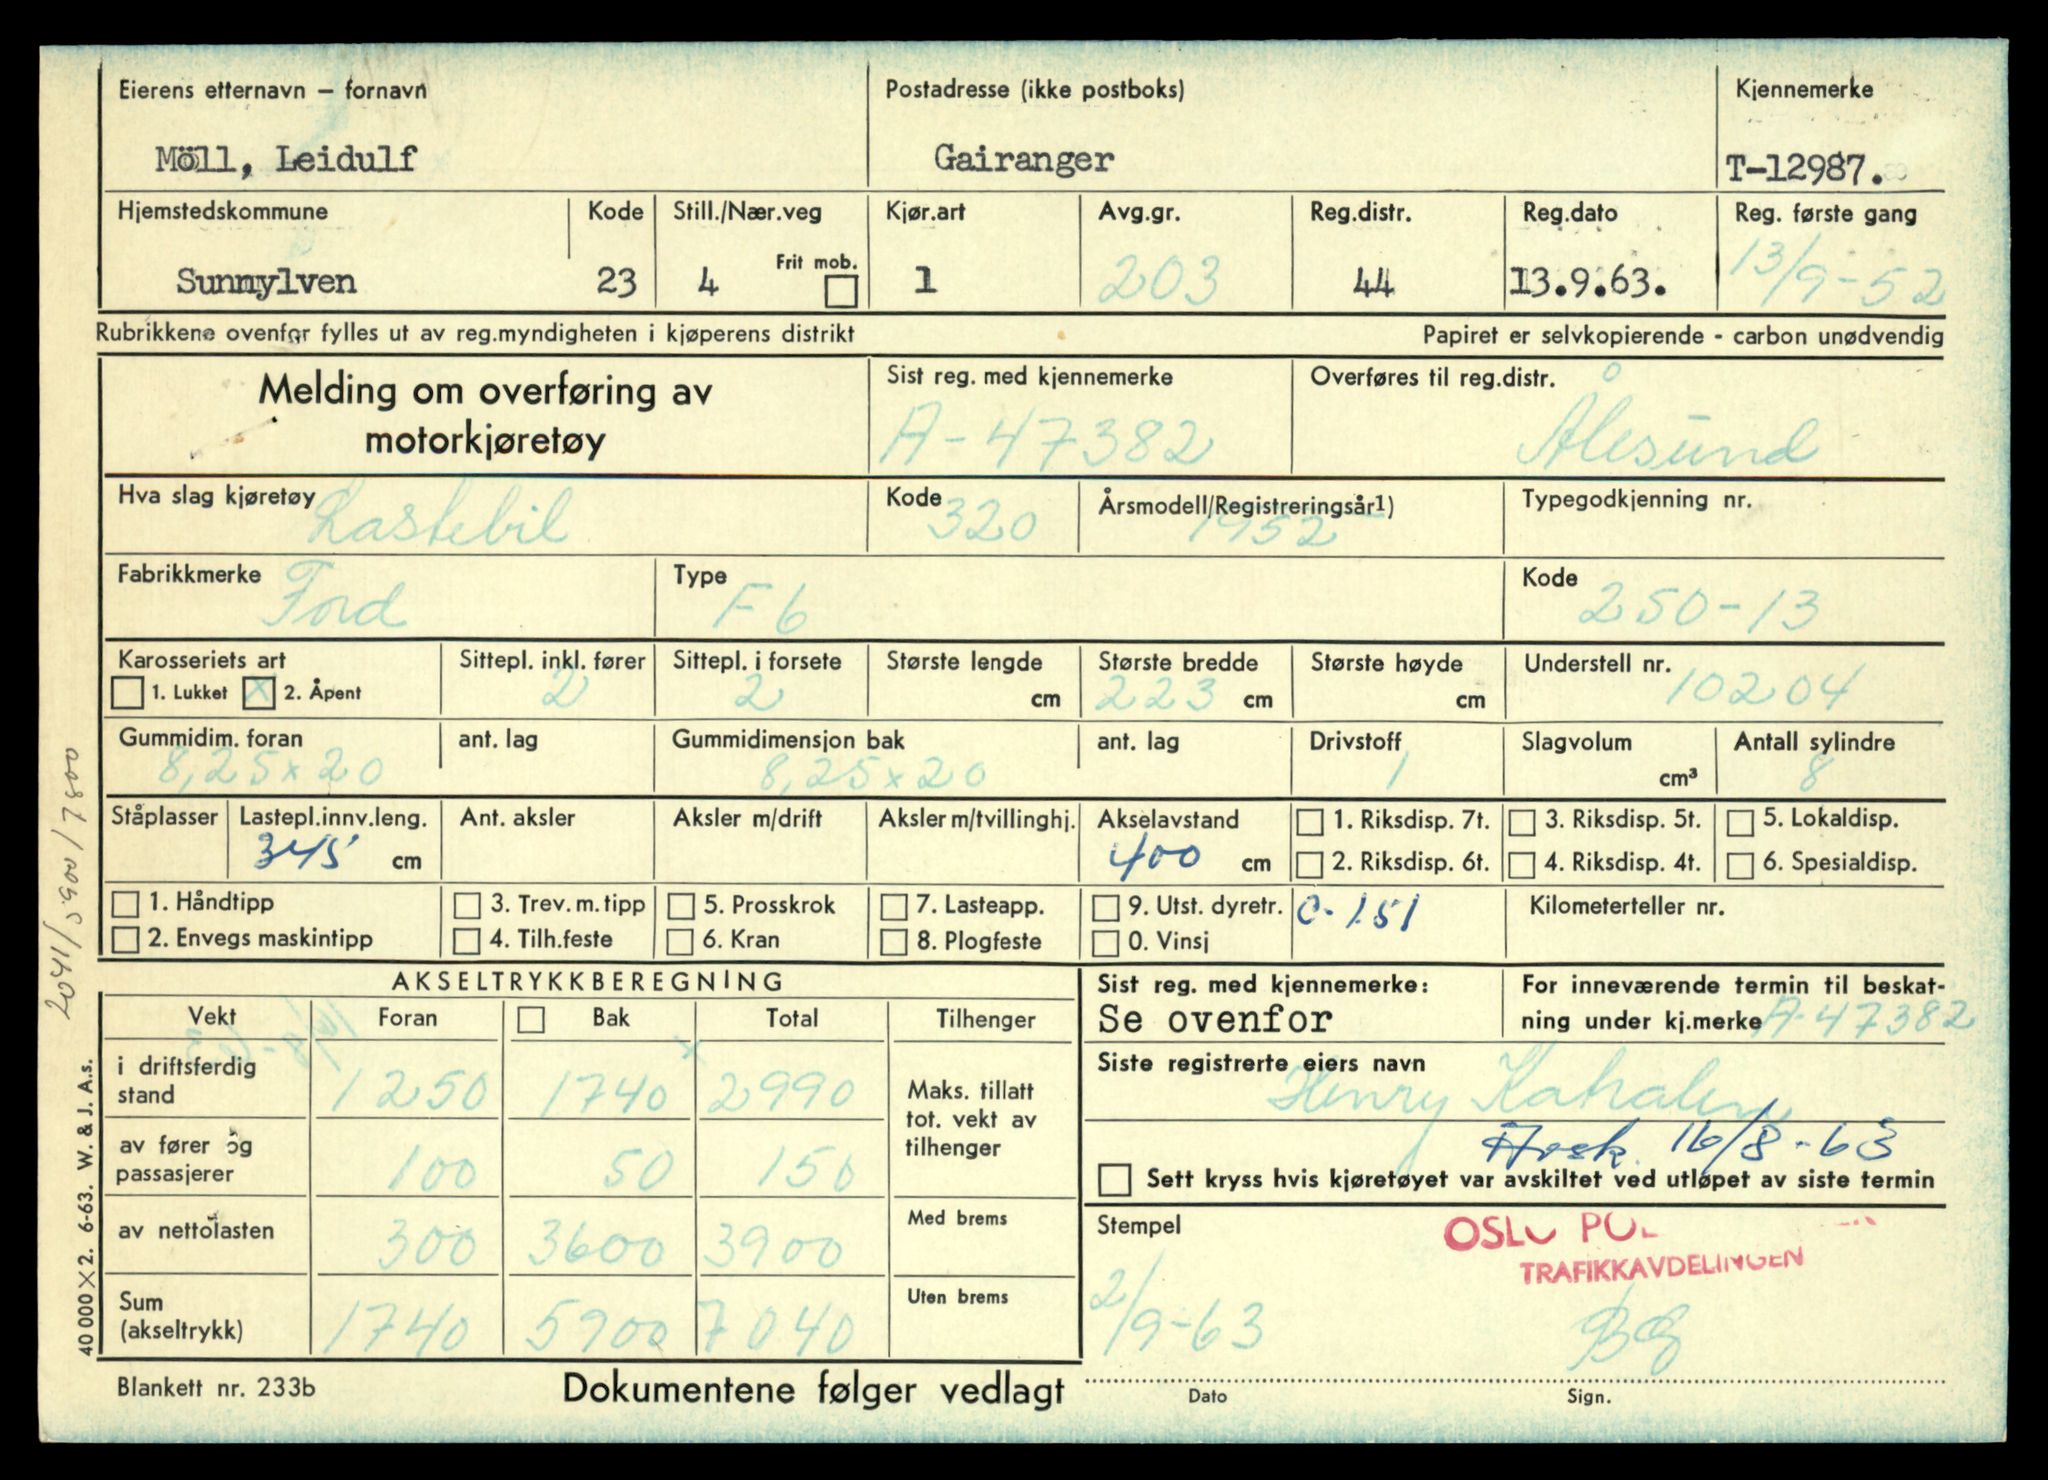 Eierens etternavn – fornavn Postadresse (ikke postboks) Kjennemerke
Möll, Leidulf Gairanger T-12987.
Hjemstedskommune Kode Still./Nær.veg Kjør.art Avg.gr. Reg.distr. Reg.dato Reg. første gang
Frit mob.
Sunnylven 23 4 1 203 44 13.9.63. 13/9-52
Rubrikkene ovenfor fylles ut av reg.myndigheten i kjøperens distrikt Papiret er selvkopierende - carbon unødvendig
Melding om overføring av
motorkjøretøy
Sist reg. med kjennemerke Overføres til reg.distr.
A-47382 Ålesund
Hva slag kjøretøy Kode Årsmodell/Registreringsår1) Typegodkjenning nr.
Lastebil 320 1952
Fabrikkmerke Type Kode
Ford F6 250-13
Karosseriets art Sittepl. inkl. fører Sittepl. i forsete Største lengde Største bredde Største høyde Understell nr.
1. Lukket X 2. Åpent 2 2 cm 223 cm cm 10204
Gummidim. foran ant. lag Gummidimensjon bak ant. lag Drivstoff Slagvolum Antall sylindre
8,25x20 8,25x20 1 cm³ 8
Ståplasser Lastepl.innv.leng. Ant. aksler Aksler m/drift Aksler m/tvillinghj. Akselavstand 1. Riksdisp. 7t. 3. Riksdisp. 5t. 5. Lokaldisp.
345 cm 400 cm 2. Riksdisp. 6t. 4. Riksdisp. 4t. 6. Spesialdisp.
1. Håndtipp 3. Trev. m. tipp 5. Prosskrok 7. Lasteapp. 9. Utst. dyretr. C-151 Kilometerteller nr.
2. Envegs maskintipp 4. Tilh.feste 6. Kran 8. Plogfeste 0. Vinsj
AKSELTRYKKBEREGNING
Vekt Foran Bak Total Tilhenger
i driftsferdig
stand 1250 1740 2990
av fører og
passasjerer 100 50 150
Maks. tillatt
tot. vekt av
tilhenger
av nettolasten 300 3600 3900 Med brems
Sum
(akseltrykk) 1740 5900 7040 Uten brems
Sist reg. med kjennemerke:
Se ovenfor
For inneværende termin til beskat-
ning under kj.merke A-47382
Siste registrerte eiers navn
Henry
16/8-63
Sett kryss hvis kjøretøyet var avskiltet ved utløpet av siste termin
Stempel
OSLO POL
TRAFIKKAVDELINGEN
2/9-63
Dato Sign.
Blankett nr. 233b Dokumentene følger vedlagt
40 000 × 2. 6-63. W. & J. A.s.
2041/5.900/7800